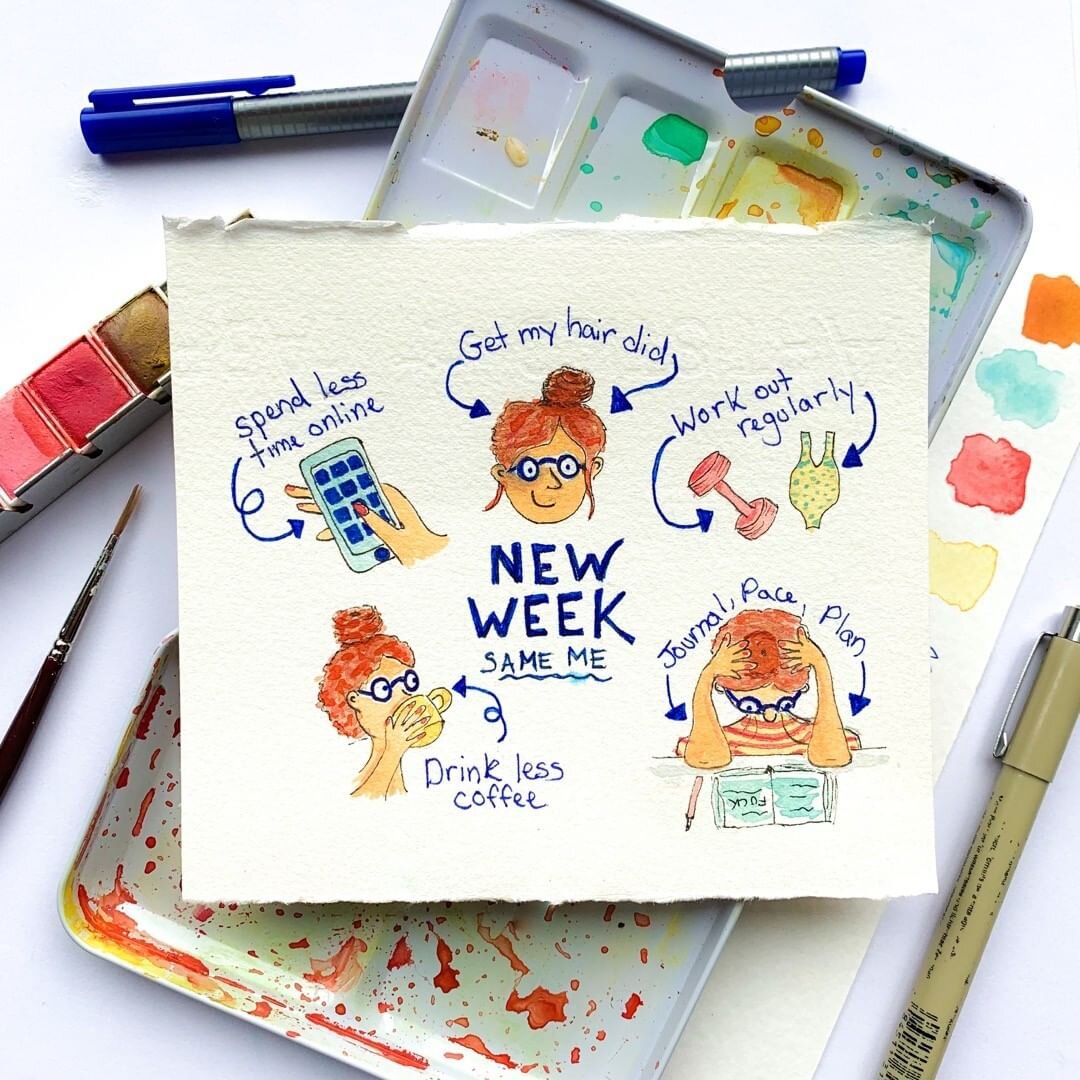 Get my hair did
spend less
time online
Work out
regularly
NEW
WEEK
SAME ME
Journal, Pace, Plan
Drink less
coffee
FUCK